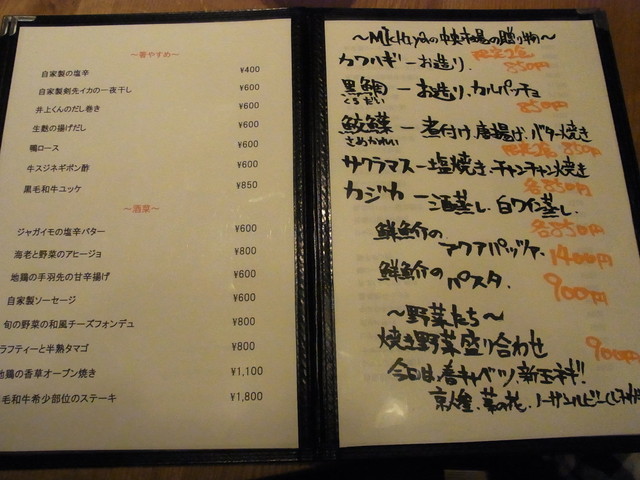 ～箸やすめ～
自家製の塩辛 ¥400
自家製剣先イカの一夜干し ¥600
井上くんのだし巻き ¥600
生麩の揚げだし ¥600
鴨ロース ¥600
牛スジネギポン酢 ¥600
黒毛和牛ユッケ ¥850
～酒菜～
ジャガイモの塩辛バター ¥600
海老と野菜のアヒージョ ¥800
地鶏の手羽先の甘辛揚げ ¥600
自家製ソーセージ ¥600
旬の野菜の和風チーズフォンデュ ¥800
ラフティーと半熟タマゴ ¥800
地鶏の香草オーブン焼き ¥1,100
毛和牛希少部位のステーキ ¥1,800
～Michiyaの中央市場の贈り物～
カワハギーお造り. 限定2名 850円
黒鯛ーお造り、カルパッチョ
くろだい 850円
鮫鰈ー煮付け、唐揚げ、バター焼き
さめかれい 限定2名 850円
サクラマスー塩焼き、チャンチャン焼き
各850円
カジカー酒蒸し、白ワイン蒸し.
各850円
鮮魚介の
アクアパッツァ. 1400円
鮮魚介の
パスタ. 900円
～野菜たち～
焼き野菜盛り合わせ 900円
今日は、春キャベツ、新玉ネギ!!
京人参、菜の花、ノーザンルビー